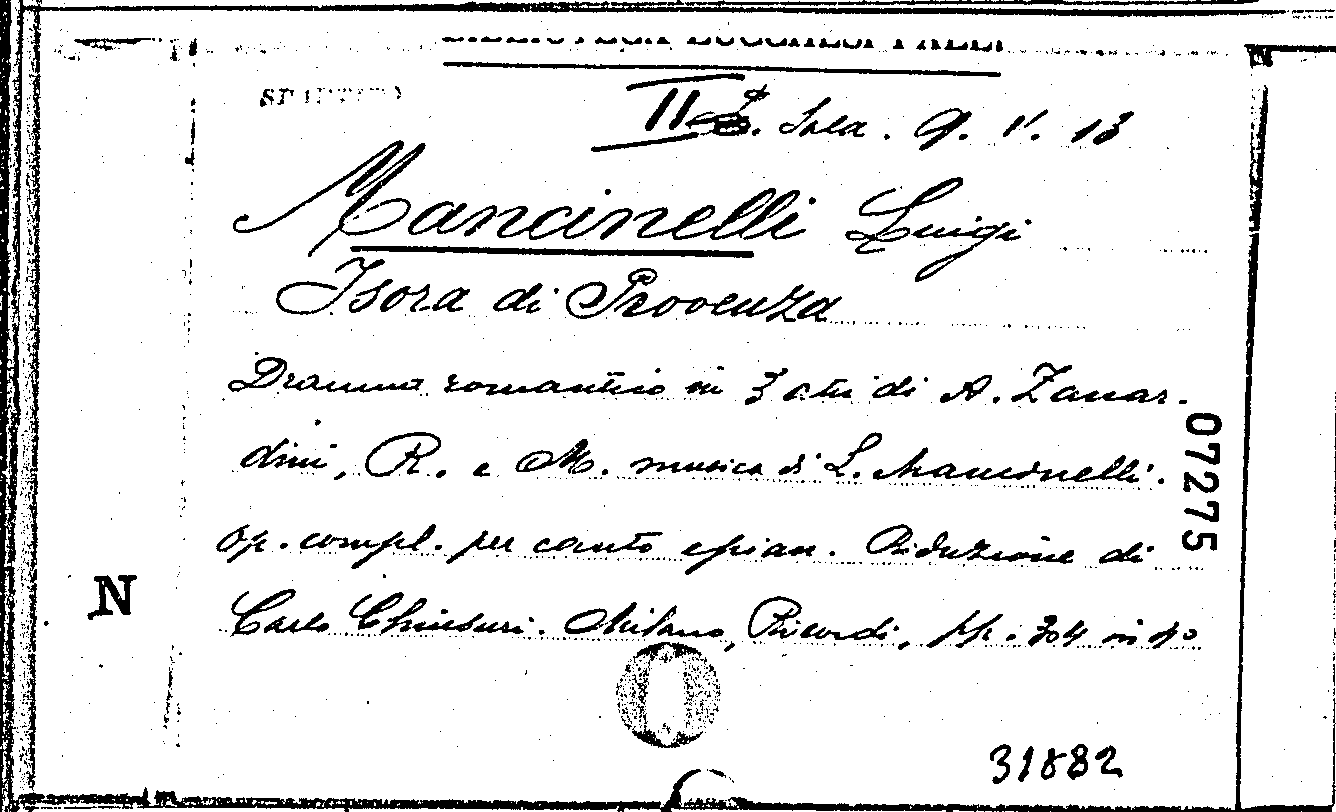 BIBLIOTECA LUCCHESI PALLI
II Sala. 9. V. 13
Mancinelli Luigi
Isora di Provenza
Dramma romantico in 3 atti di A. Zanar-
dini, R. e M. musica di L. Mancinelli.
Op. compl. per canto e pian. Riduzione di
Carlo Chiusuri. Milano, Ricordi, pp. 304 in 4°
07275
N
N
31882